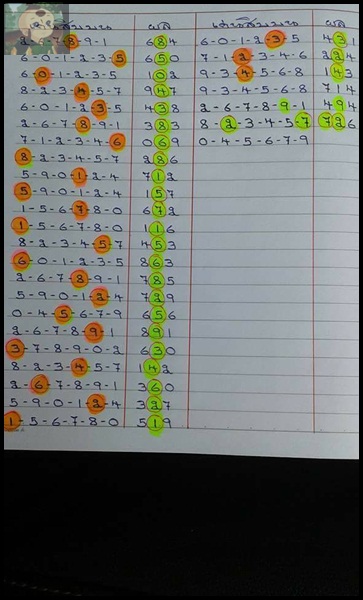 ผล เลขสัมพันธ์ ผล
2-6-7-8-9-1 684 6-0-1-2-3-5 431
6-0-1-2-3-5 650 7-1-2-3-4-6 224
6-0-1-2-3-5 102 9-3-4-5-6-8 143
8-2-3-4-5-7 947 9-3-4-5-6-8 714
6-0-1-2-3-5 438 2-6-7-8-9-1 494
2-6-7-8-9-1 383 8-2-3-4-5-7 726
7-1-2-3-4-6 069 0-4-5-6-7-9
8-2-3-4-5-7 286
5-9-0-1-2-4 712
5-9-0-1-2-4 157
1-5-6-7-8-0 672
1-5-6-7-8-0 116
8-2-3-4-5-7 453
6-0-1-2-3-5 863
2-6-7-8-9-1 785
5-9-0-1-2-4 729
0-4-5-6-7-9 656
2-6-7-8-9-1 891
3-7-8-9-0-2 630
8-2-3-4-5-7 142
2-6-7-8-9-1 360
5-9-0-1-2-4 327
1-5-6-7-8-0 519